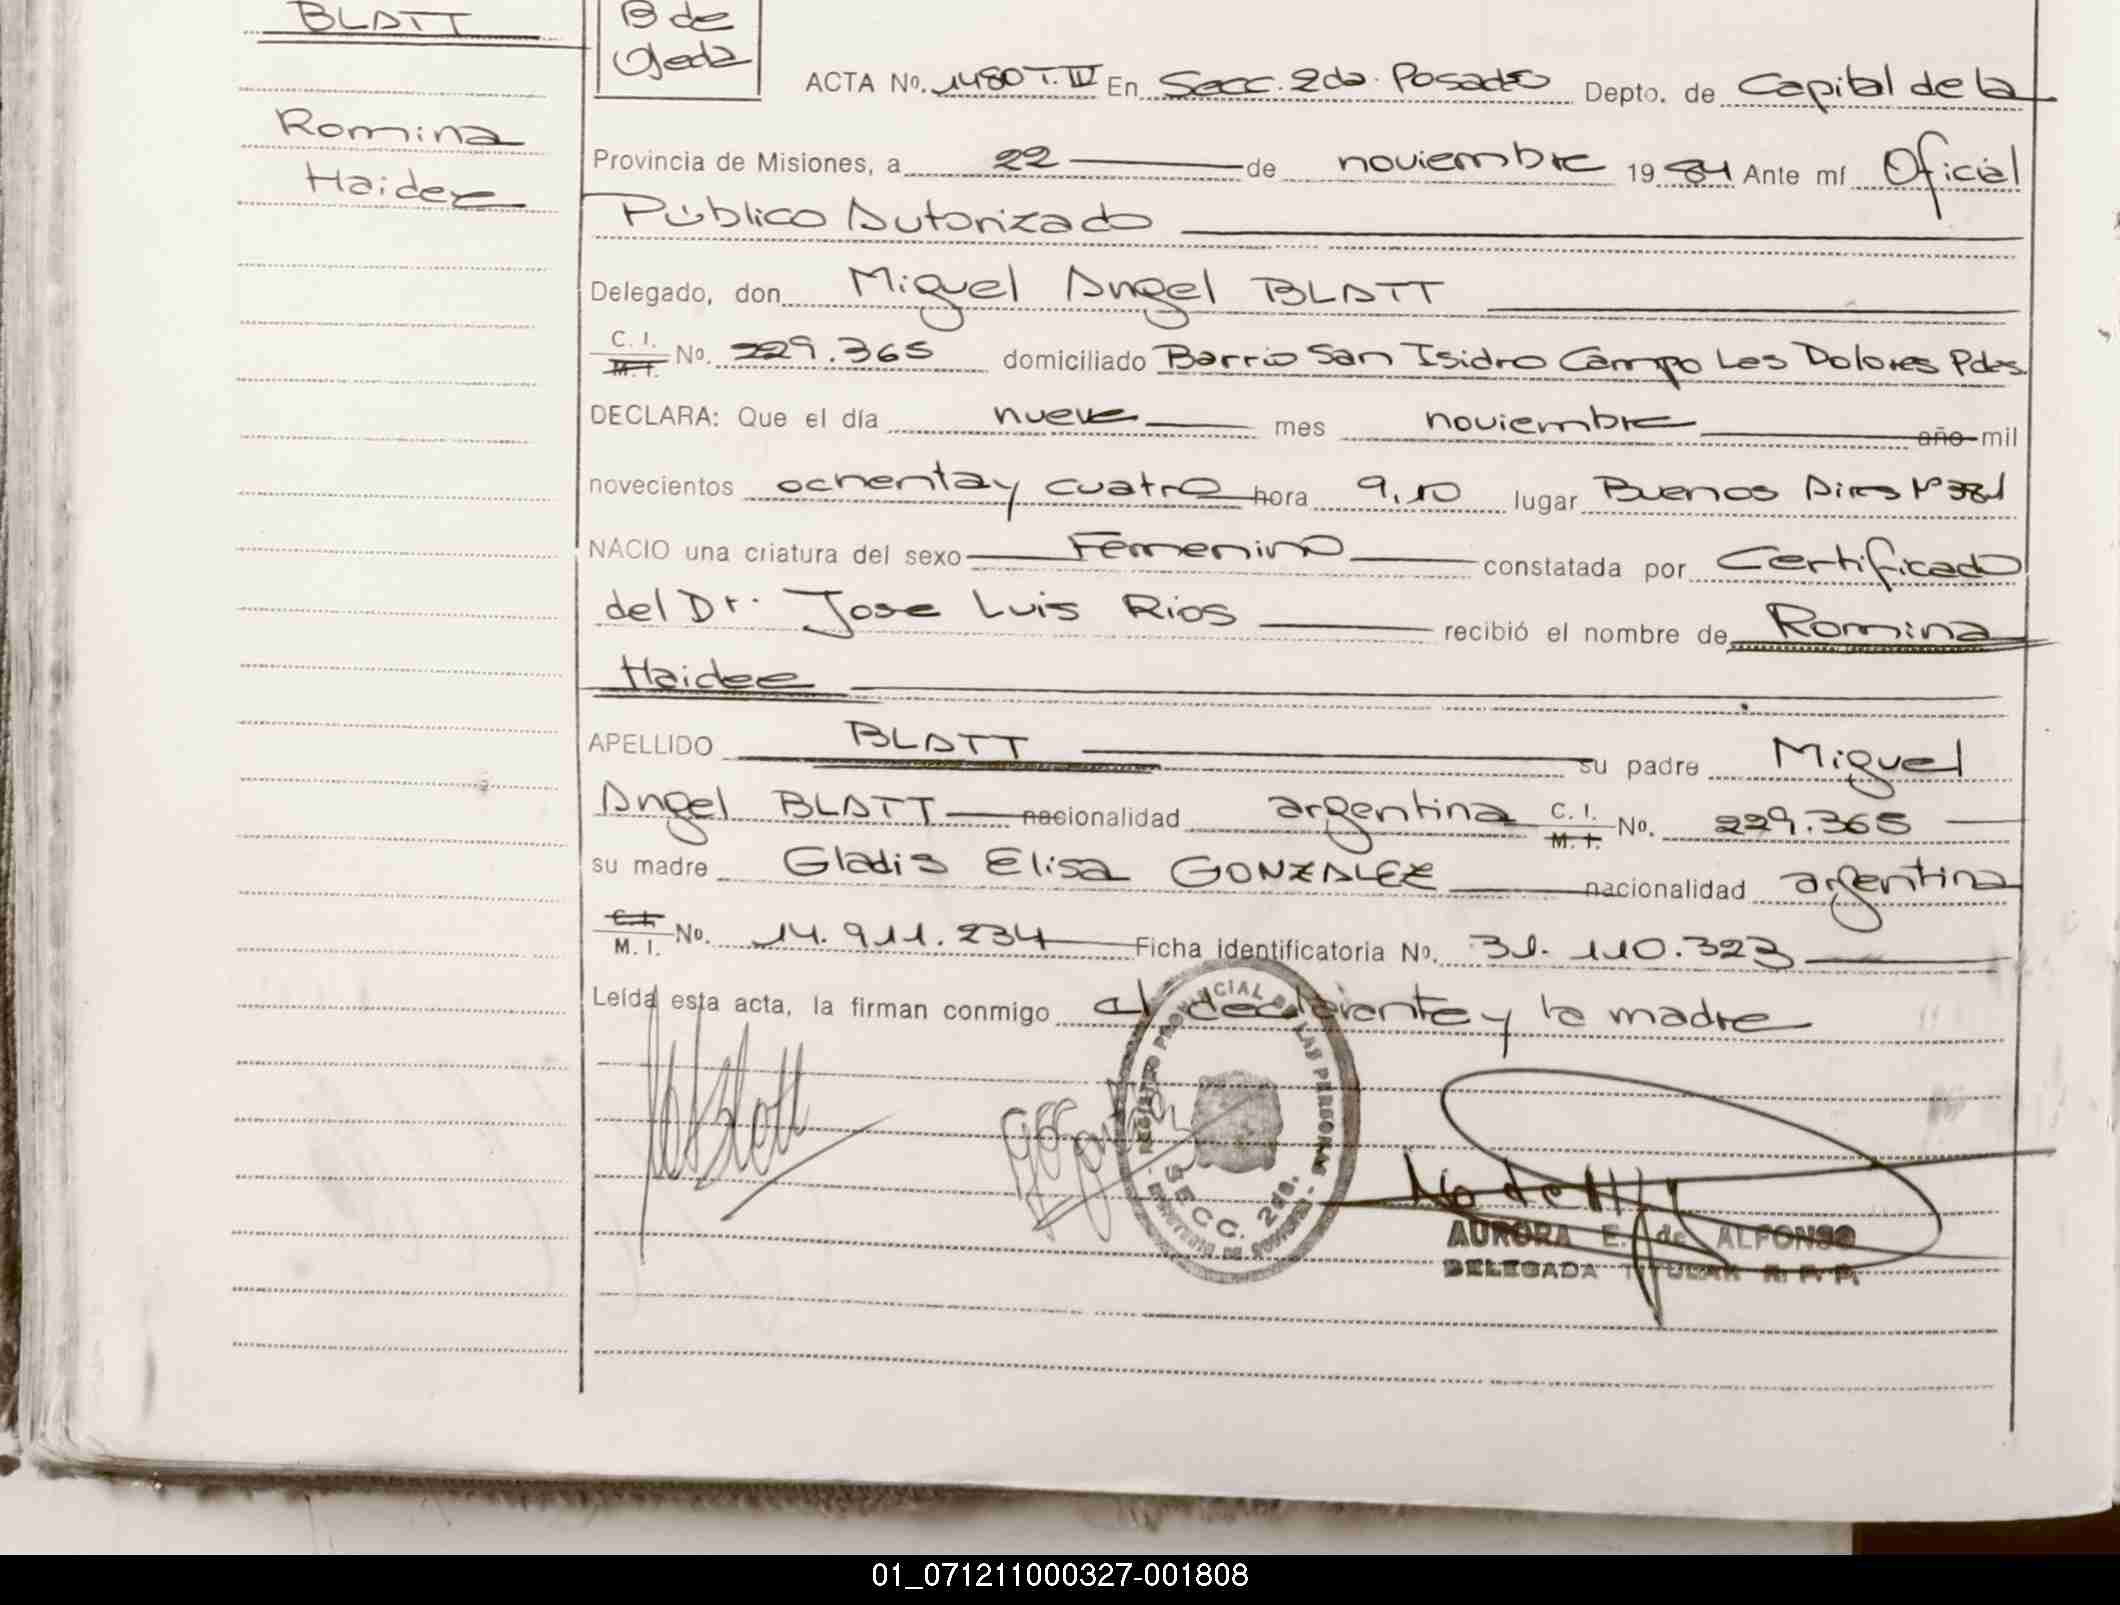 BLATT
B de
Ojeda
ACTA Nº. 1480 T. IV En Secc. 2da. Posadas Depto. de Capital de la
Romina
Haidee
Provincia de Misiones, a 22 de noviembre 1984 Ante mí Oficial
Público Autorizado
Delegado, don Miguel Angel BLATT
C. I.
M. I. Nº. 229.365 domiciliado Barrio San Isidro Campo Las Dolores Pdas.
DECLARA: Que el día nueve mes noviembre año mil
novecientos ochenta y cuatro hora 9,10 lugar Buenos Aires Nº 381
NACIO una criatura del sexo Femenino constatada por Certificado
del Dr. Jose Luis Rios recibió el nombre de Romina
Haidee
APELLIDO BLATT su padre Miguel
Angel BLATT nacionalidad argentina C. I. M. I. Nº. 229.365
su madre Gladis Elisa GONZALEZ nacionalidad argentina
C. I.
M. I. Nº. 14.911.234 Ficha identificatoria Nº. 31.110.323
Leída esta acta, la firman conmigo el declarante y la madre
REGISTRO PROVINCIAL DE LAS PERSONAS
SECC. 2da.
MINISTERIO DE GOBIERNO
AURORA E. de ALFONSO
DELEGADA TITULAR R. P. P.
01_071211000327-001808